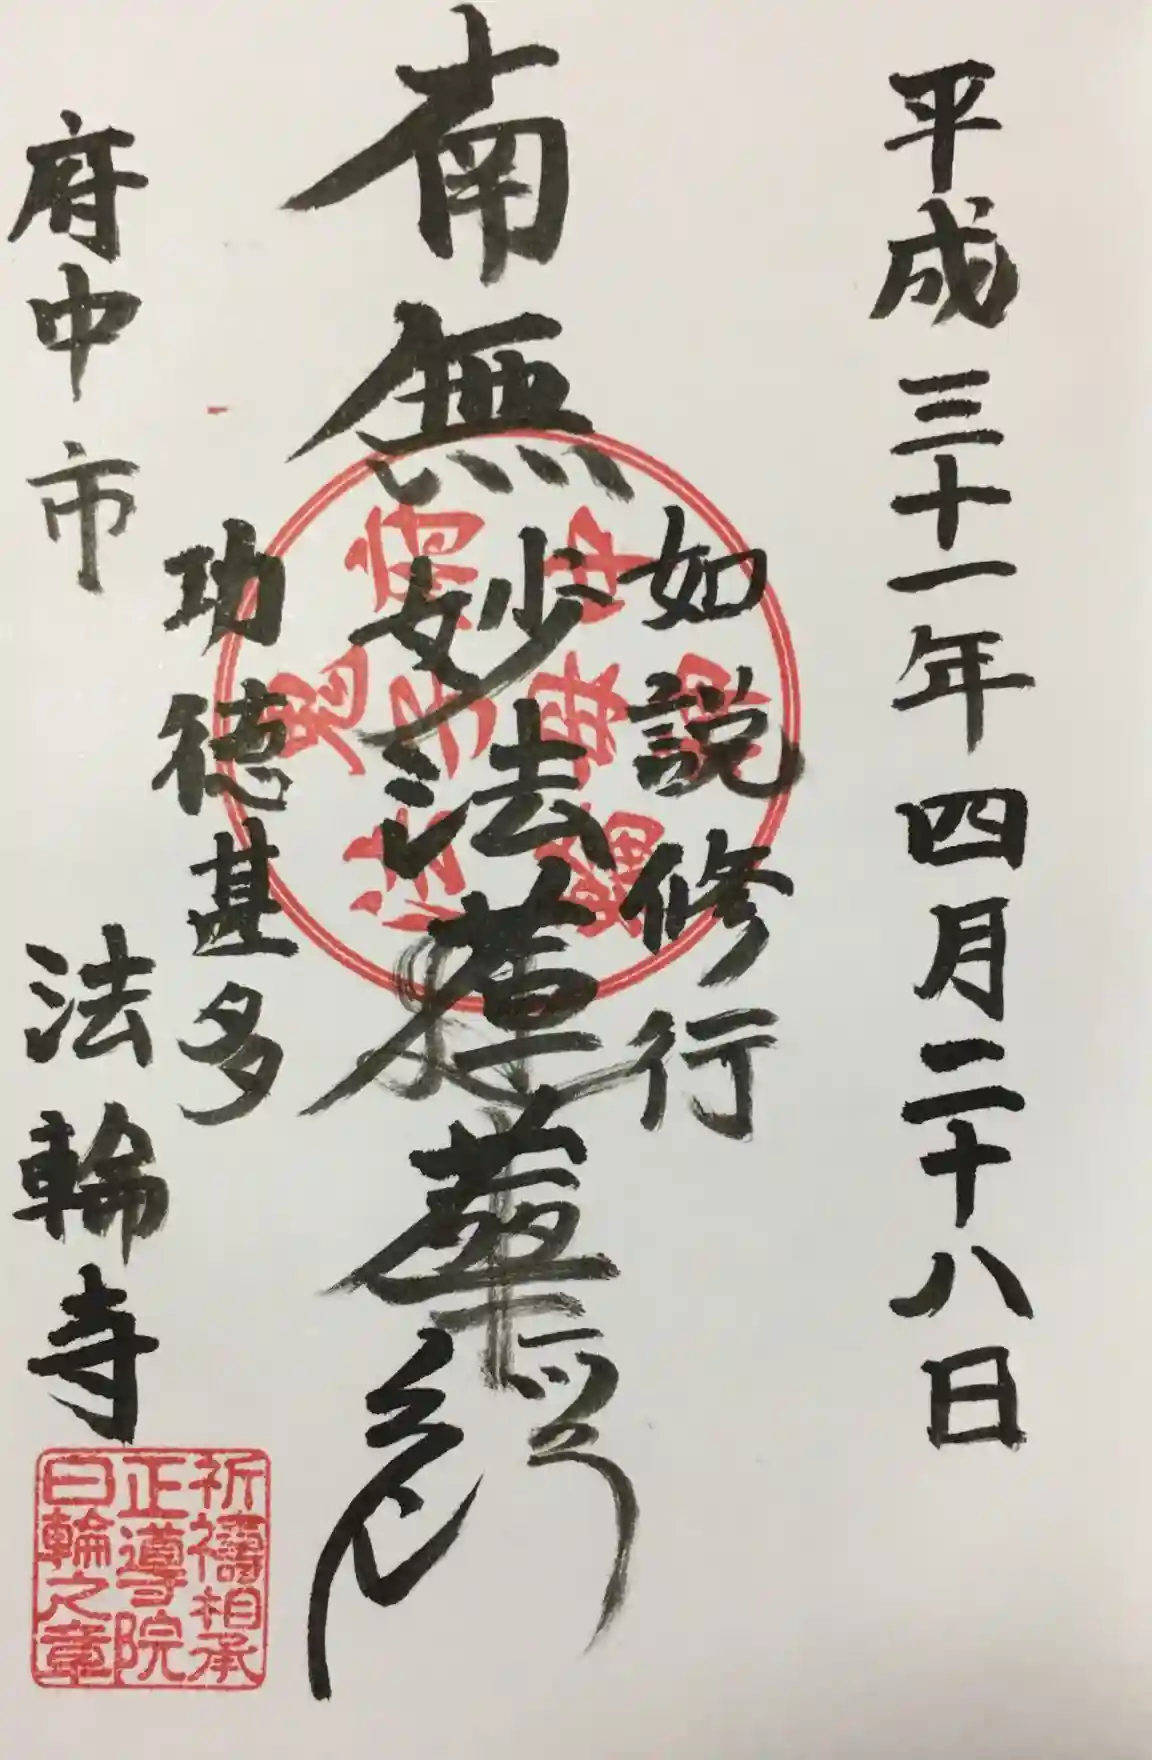 平成三十一年四月二十八日
如説修行
南無妙法蓮華経
功徳甚多
府中市 法輪寺
祈禱相承
正導院
日輪之章